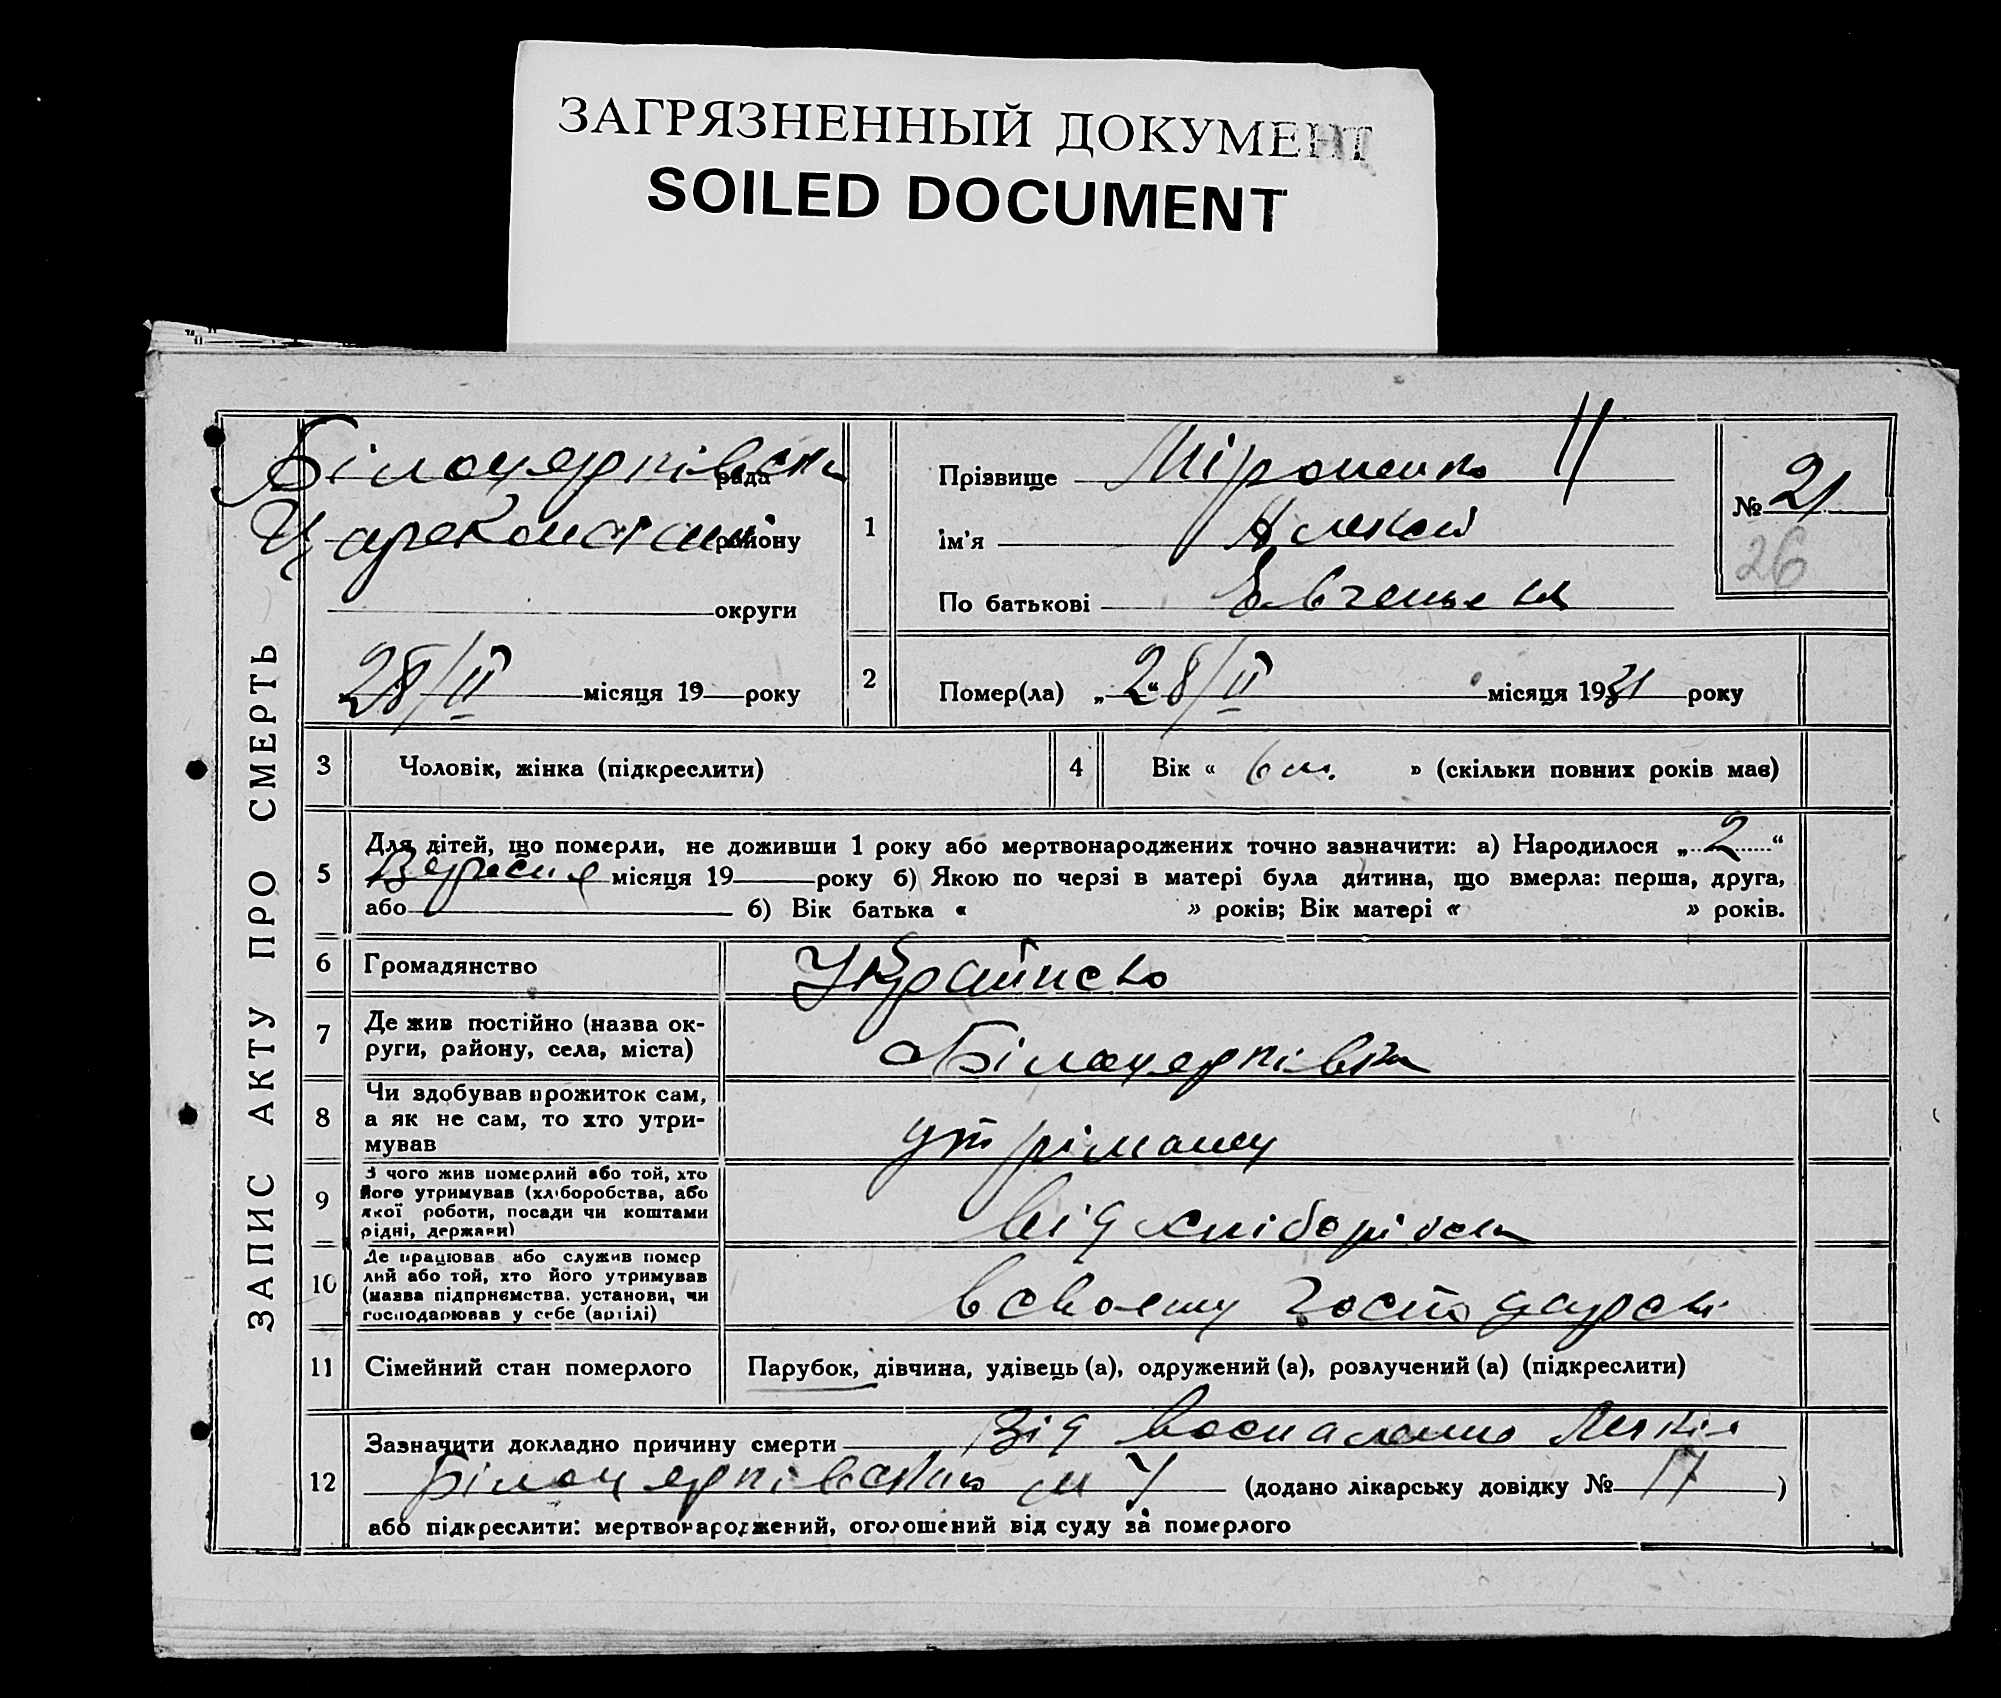 ЗАГРЯЗНЕННЫЙ ДОКУМЕНТ
SOILED DOCUMENT
ЗАПИС АКТУ ПРО СМЕРТЬ
Білоцерківска рада
району
округи
28/II місяця 19 року
1 Прізвище Міроненко
ім'я
По батькові
№ 21
26
2 Помер(ла) „28/II місяця 1931 року
3 Чоловік, жінка (підкреслити)
4 Вік « 6 м. » (скільки повних років має)
5 Для дітей, що померли, не доживши 1 року або мертвонароджених точно зазначити: а) Народилося „ 2 “
Вересня місяця 19 року б) Якою по черзі в матері була дитина, що вмерла: перша, друга,
або б) Вік батька « » років; Вік матері « » років.
6 Громадянство Українсько
7 Де жив постійно (назва ок-
руги, району, села, міста) Білоцерківка
8 Чи здобував прожиток сам,
а як не сам, то хто утри-
мував утріманец
9 З чого жив померлий або той, хто
його утримував (хліборобства, або
якої роботи, посади чи коштами
рідні, держави) від
10 Де працював або служив помер
лий або той, хто його утримував
(назва підприємства, установи, чи
господарював у себе (артілі) в своему господарстві
11 Сімейний стан померлого Парубок, дівчина, удівець (а), одружений (а), розлучений (а) (підкреслити)
12 Зазначити докладно причину смерти Від воспаления Легкіх
(додано лікарську довідку № 17 )
або підкреслити: мертвонароджений, оголошений від суду за померлого